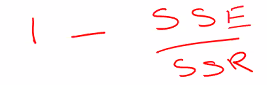 1 - SSE
SSR